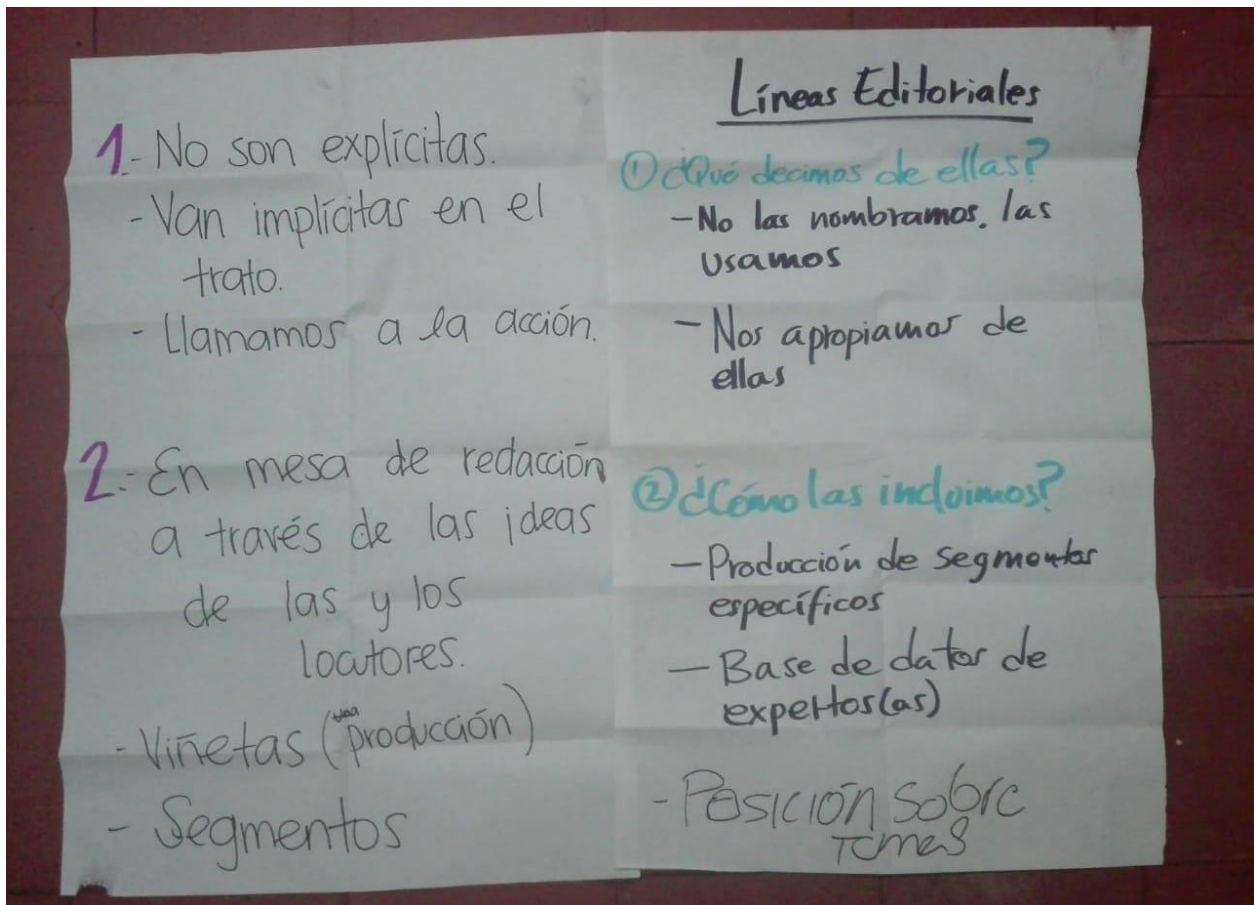 1.- No son explícitas.
- Van implícitas en el
trato.
- Llamamos a la acción.
2.- En mesa de redacción
a través de las ideas
de las y los
locutores.
- Viñetas (producción)
- Segmentos
Líneas Editoriales
① ¿Qué decimos de ellas?
- No las nombramos. las
usamos
- Nos apropiamos de
ellas
② ¿Cómo las incluimos?
- Producción de segmentos
específicos
- Base de datos de
expertos(as)
- Posición sobre
Temas